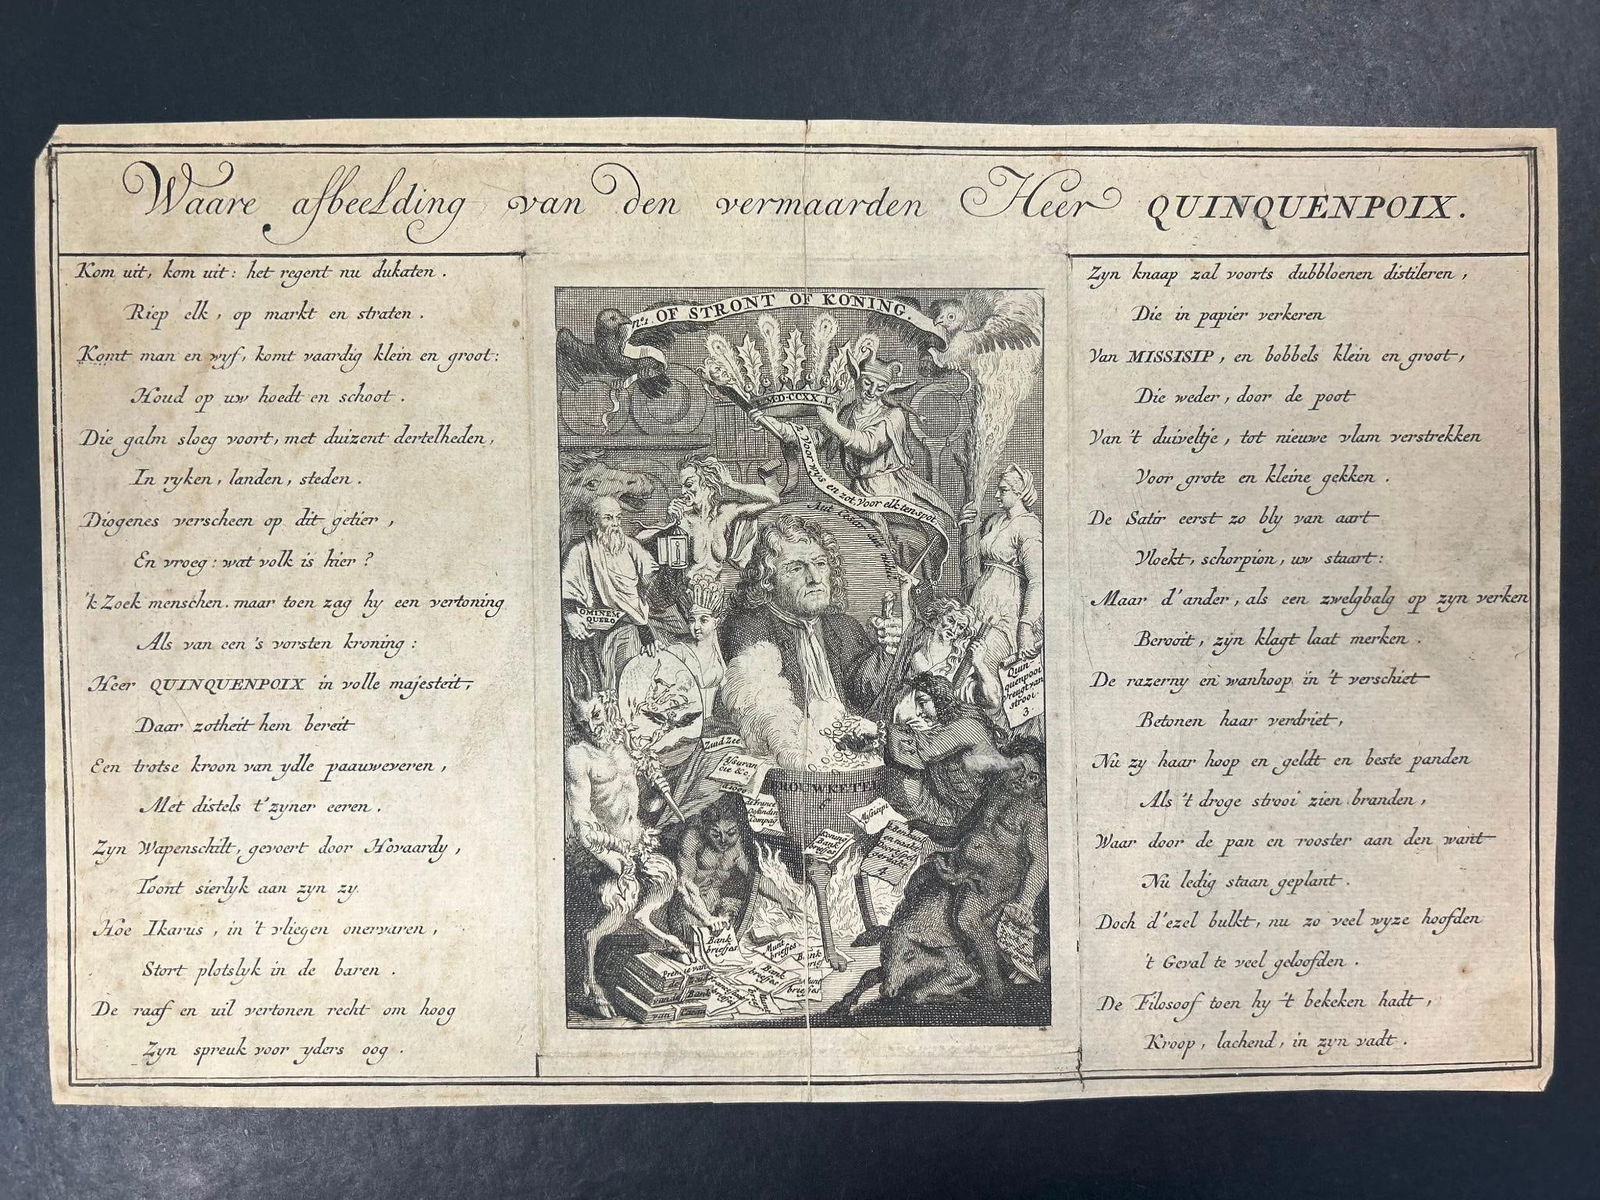 Waare afbeelding van den vermaarden Heer QUINQUENPOIX.
Kom uit, kom uit: het regent nu dukaten.
Riep elk, op markt en straten.
Komt man en wyf, komt vaardig klein en groot:
Houd op uw hoedt en schoot.
Die galm sloeg voort, met duizent dertelheden,
In ryken, landen, steden.
Diogenes verscheen op dit getier,
En vroeg: wat volk is hier?
'k Zoek menschen. maar toen zag hy een vertoning
Als van een 's vorsten kroning:
Heer QUINQUENPOIX in volle majesteit,
Daar zotheit hem bereit
Een trotse kroon van ydle paauweveren,
Met distels t'zyner eeren.
Zyn Wapenschilt, gevoert door Hovaardy,
Toont sierlyk aan zyn zy.
Hoe Ikarus, in 't vliegen onervaren,
Stort plotslyk in de baren.
De raaf en uil vertonen recht om hoog
Zyn spreuk voor yders oog.
No. 1. OF STRONT OF KONING.
M.D.CCXX.I.
2. Voor wys en zot, Voor elk ten spot
Aut Cesar aut nihil
OMINEM
QUERO
Quin
quenpoix
brengt van
strooi
3
Zuid Zee
Assuran
tie &c.
Compag
BROUWKETEL
6
Missisipi
Bank
briefjes
4
Bank
briefjes
Munt
briefjes
Bank
briefjes
Bank
brief
Munt
briefjes
van
Zyn knaap zal voorts dubbloenen distileren,
Die in papier verkeren
Van MISSISIP, en bobbels klein en groot,
Die weder, door de poot
Van 't duiveltje, tot nieuwe vlam verstrekken
Voor grote en kleine gekken.
De Satir eerst zo bly van aart
Vloekt, schorpion, uw staart:
Maar d'ander, als een zwelgbalg op zyn verken
Berooit, zyn klagt laat merken.
De razerny en wanhoop in 't verschiet
Betonen haar verdriet,
Nu zy haar hoop en geldt en beste panden
Als 't droge strooi zien branden,
Waar door de pan en rooster aan den want
Nu ledig staan geplant.
Doch d'ezel bulkt, nu zo veel wyze hoofden
't Geval te veel geloofden.
De Filosoof toen hy 't bekeken hadt,
Kroop, lachend, in zyn vadt.